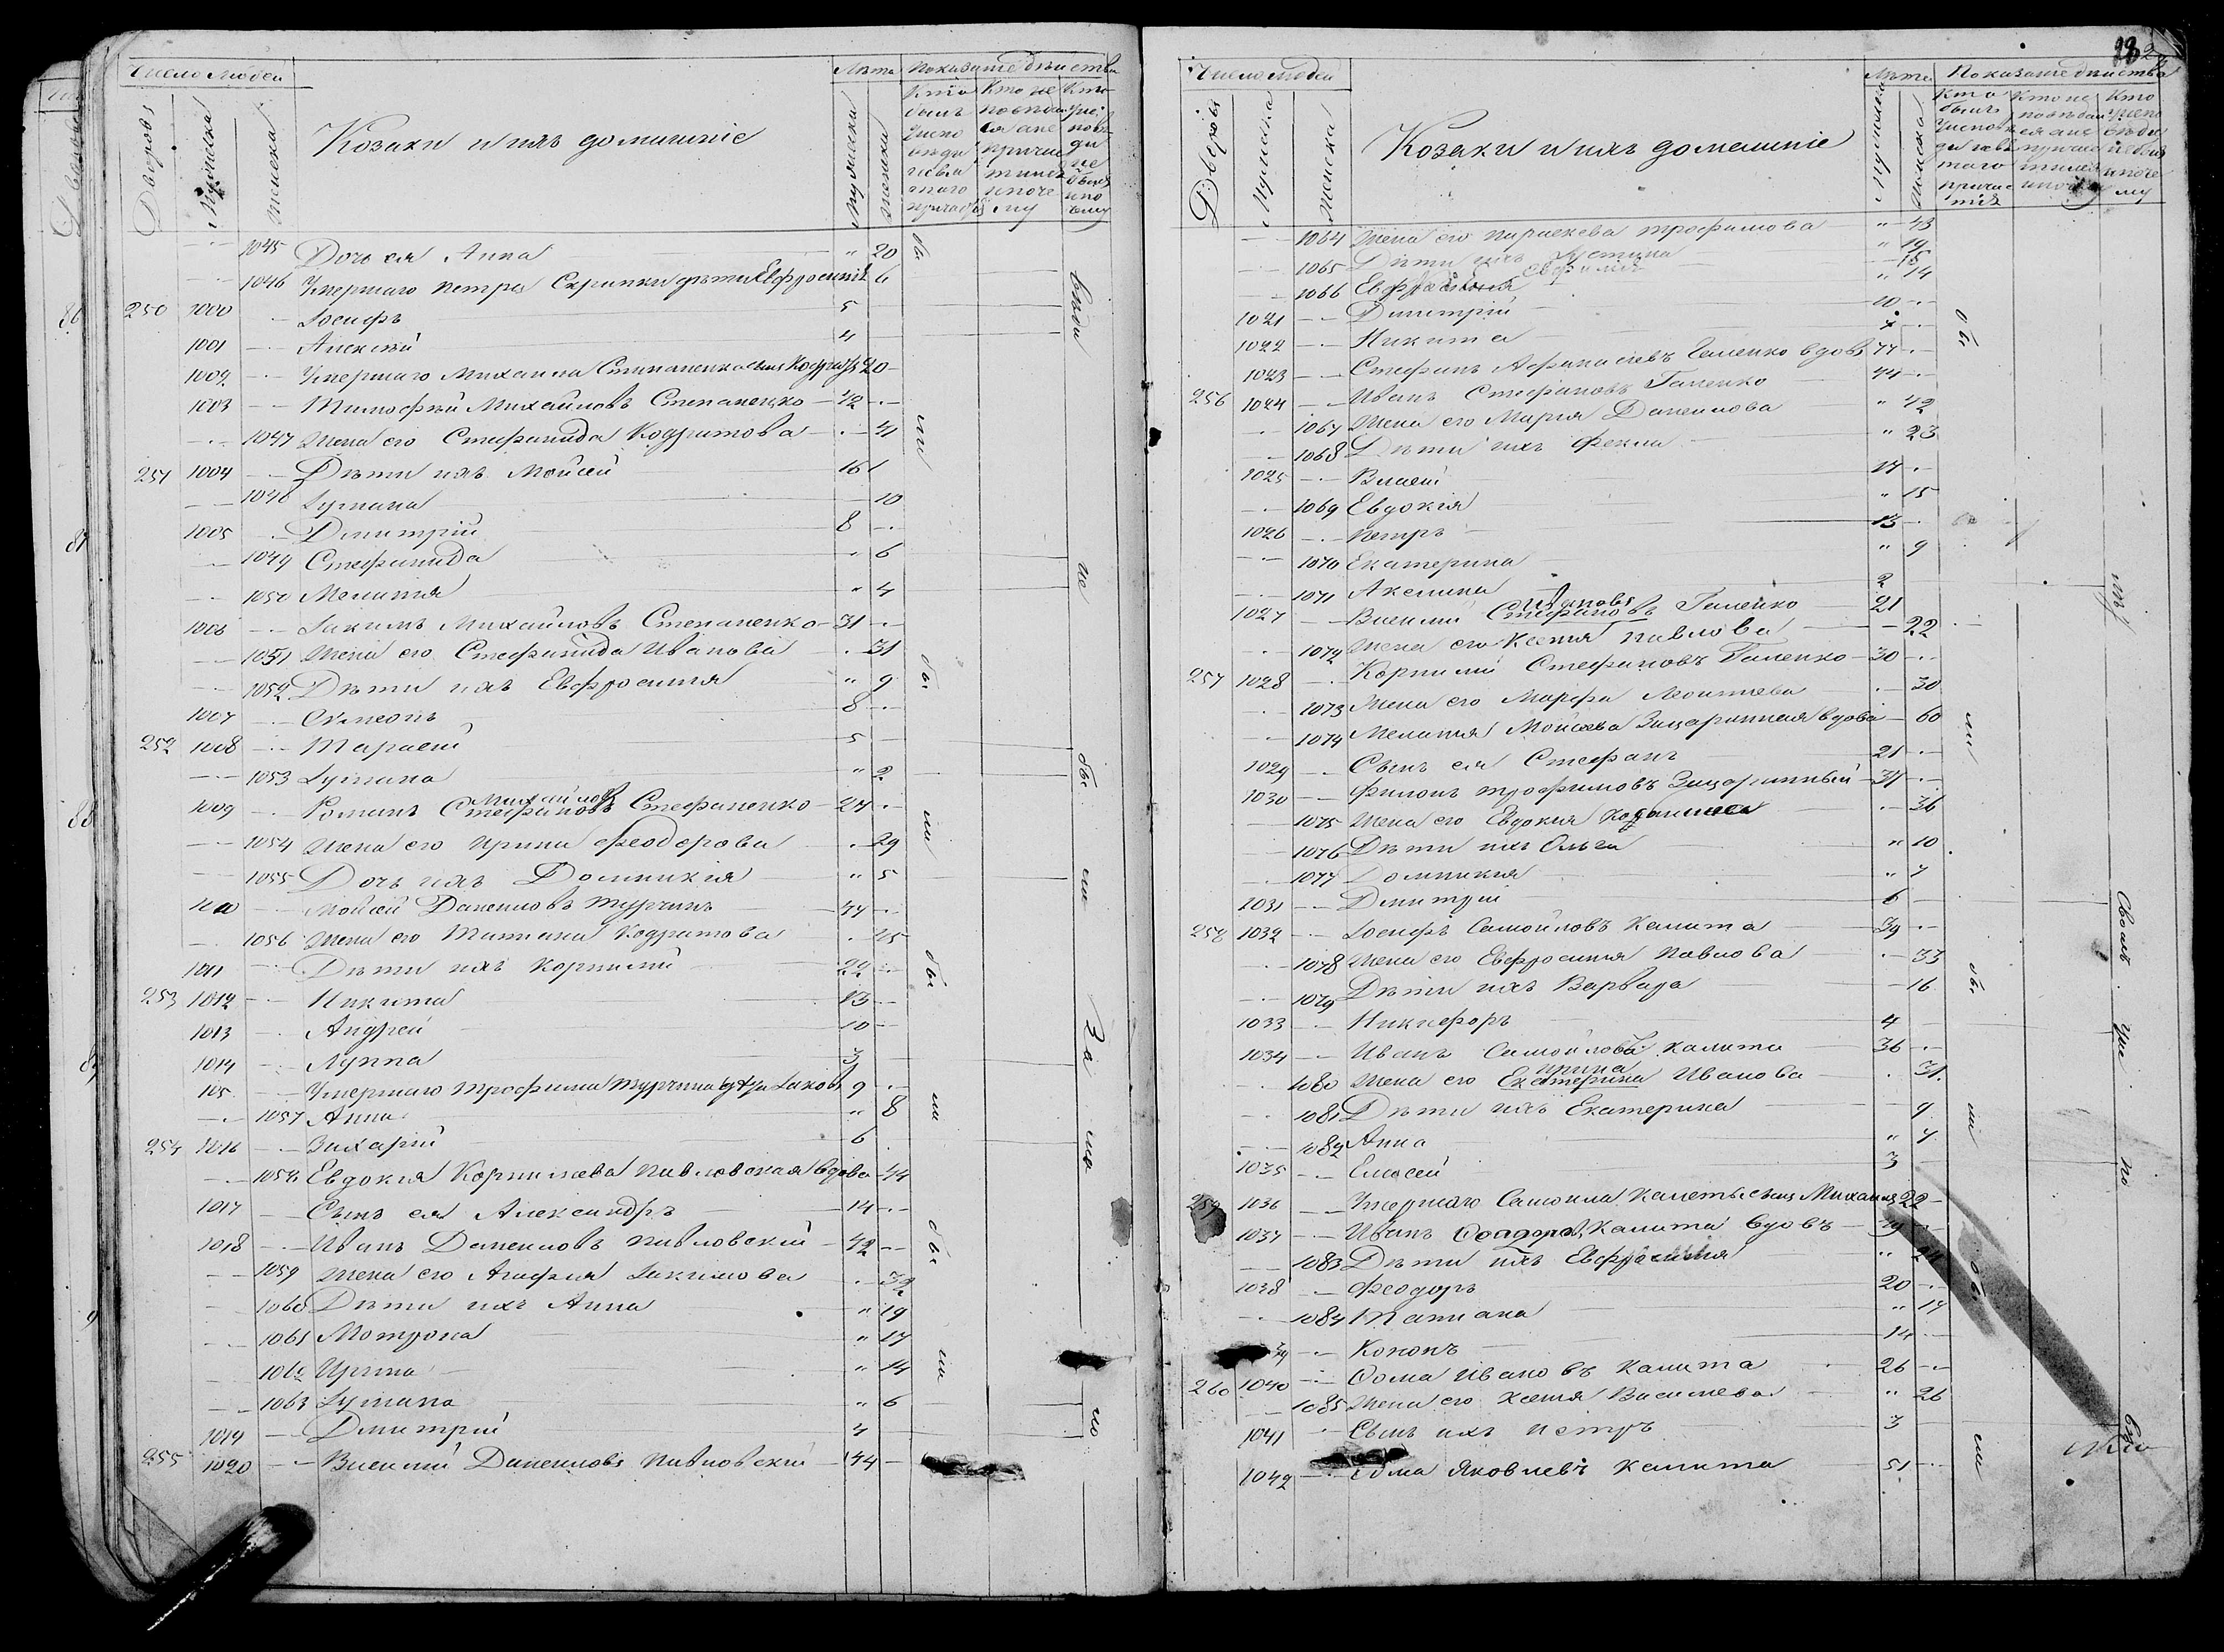 Число людей
Лѣта
Показаніе дѣйства
Дворовъ
Мужеска
Женска
Козаки и ихъ домашніе
мужеска
женска
1045 Дочь ея Анна " 20
1046 Умершаго Петра Скрипки дѣти Евфросинія 6
250 1000 Іосифъ 5
1001 Алексѣй 4
1002 Умершаго Михаила Степаненка сынъ Кодратъ 20
1003 Тимофѣй Михайловъ Степаненко 42
1047 Жена его Стефанида Кодратова 41
251 1004 Дѣти ихъ Мойсей 16
1048 Іуліана 10
1005 Димитрій 8
1049 Стефанида " 6
1050 Меланія " 4
1006 Іакимъ Михайловъ Степаненко 31
1051 Жена его Стефанида Иванова 31
1052 Дѣти ихъ Евфросинія " 9
1007 Симеонъ 8
252 1008 Тарасій 5
1053 Іуліана " 2
1009 Романъ Стефановъ Михайловъ Стефаненко 27
1054 Жена его Ирина Феодорова 29
1055 Дочь ихъ Домникія " 5
1010 Мойсей Даниловъ Турчинъ 47
1056 Жена его Татіана Кодратова 45
1011 Дѣти ихъ Корнилій 22
253 1012 Никита 13
1013 Андрей 10
1014 Луппа 3
105 Умершаго Трофима Турчина дѣти Іаковъ 9
1057 Анна " 8
254 1016 Захарій 6
1058 Евдокія Корнилева Павловская вдова 44
1017 Сынъ ея Александръ 14
1018 Иванъ Даниловъ Павловскій 42
1059 Жена его Агафія Іакимова 32
1060 Дѣти ихъ Анна " 19
1061 Мотрона " 17
1062 Ирина " 14
1063 Іуліана " 6
1019 Димитрій 4
255 1020 Василій Даниловъ Павловскій 44
Число людей
Лѣта
Показаніе дѣйства
Дворовъ
Мужеска
Женска
Козаки и ихъ домашніе
1064 Жена его Параскева Трофимова " 43
1065 Дѣти ихъ Іустина " 19
1066 Евфросинія " 14
1021 Димитрій 10
1022 Никита 7
1023 Стефанъ Афанасіевъ Галенко вдовъ 77
256 1024 Иванъ Стефановъ Галенко 44
1067 Жена его Марія Данилова " 42
1068 Дѣти ихъ Фекла " 23
1025 Власій 17
1069 Евдокія " 15
1026 Петръ 13
1070 Екатерина " 9
1071 Акелина 2
1027 Василій Стефановъ Ивановъ Галенко 21
1072 Жена его Ксенія Павлова 22
257 1028 Корнилій Стефановъ Галенко 30
1073 Жена его Марфа Леонтіева 30
1074 Меланія Мойсеева Зацаринная вдова 60
1029 Сынъ ея Стефанъ 21
1030 Филипъ Трофимовъ Зацаринный 37
1075 Жена его Евдокія 36
1076 Дѣти ихъ Ольга " 10
1077 Домникія " 7
1031 Димитрій 6
258 1032 Іосифъ Самойловъ Калита 39
1078 Жена его Евфросинія Павлова 33
1079 Дѣти ихъ Варвара 16
1033 Никифоръ 4
1034 Иванъ Самойловъ Калита 36
1080 Жена его Екатерина Ирина Иванова 31
1081 Дѣти ихъ Екатерина 9
1082 Анна " 7
1035 Елисей 3
259 1036 Умершаго Самоила Калиты сынъ Михаилъ 22
1037 Иванъ Калита вдовъ 49
1083 Дѣти ихъ Евфросинія " 24
1038 Феодоръ 20
1084 Татіана " 17
39 Кононъ 14
260 1040 Фома Ивановъ Калита 26
1085 Жена его Ксенія Василіева " 26
1041 Сынъ ихъ Петръ 3
1042 Фома Яковлевъ Калита 51